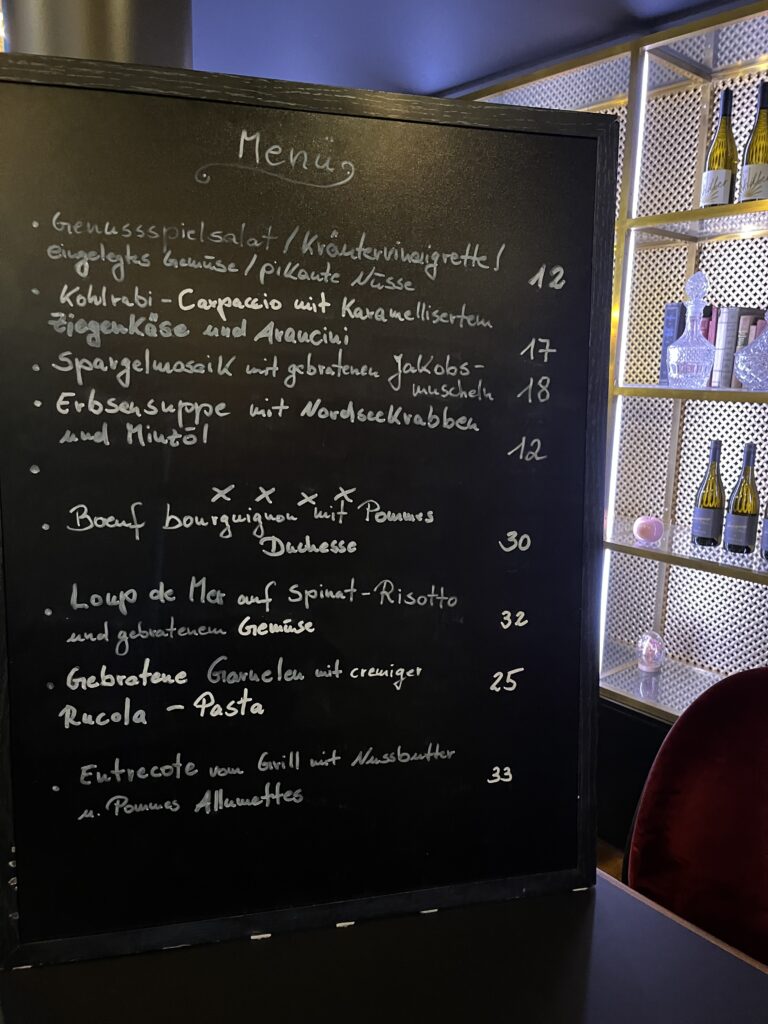 Menü
• Genussspielsalat / Kräutervinaigrette /
eingelegtes Gemüse / pikante Nüsse 12
• Kohlrabi - Carpaccio mit Karamellisertem
Ziegenkäse und Arancini 17
• Spargelmosaik mit gebratenen Jakobs-
muscheln 18
• Erbsensuppe mit Nordseekrabben
und Minzöl 12
•
x x x x
• Boeuf bourguignon mit Pommes
Duchesse 30
• Loup de Mer auf Spinat-Risotto
und gebratenem Gemüse 32
• Gebratene Garnelen mit cremiger 25
Rucola - Pasta
• Entrecote vom Grill mit Nussbutter 33
u. Pommes Allumettes